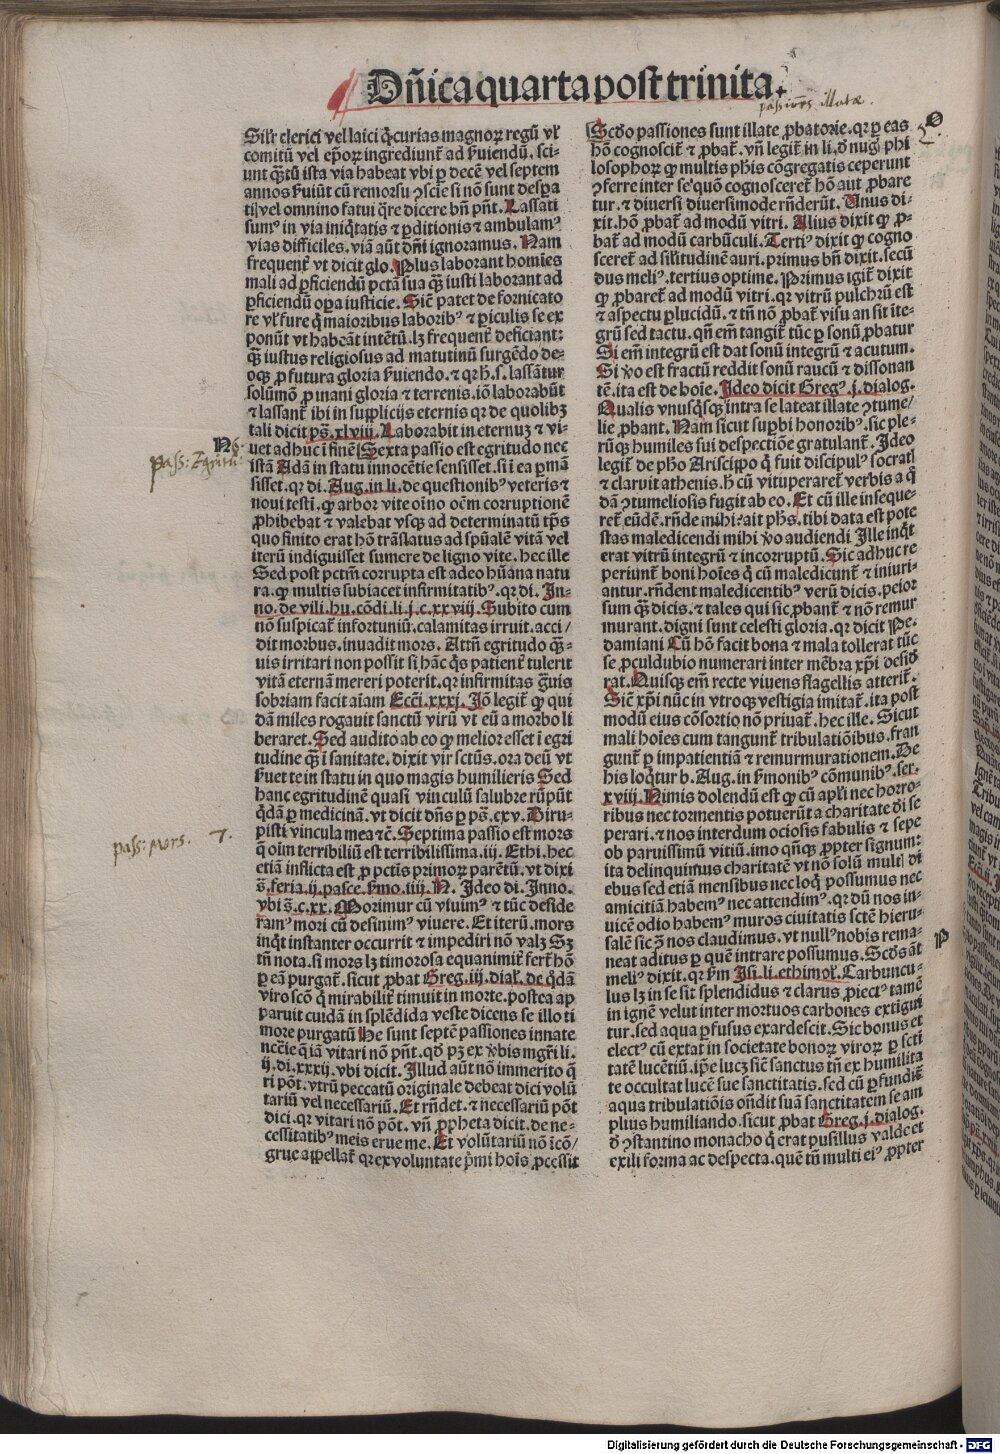 Dñica quarta post trinita.
passiões illatae.
Silr clerici vel laici q̇ curias magnoꝝ regũ vl̓
comitũ vel ep̃oꝝ ingrediunt̃ ad ẜuiendũ. sci-
unt q̃tũ ista via habeat vbi ꝑ decẽ vel septem
annos ẜuiũt cũ remorsu ꝯscie si nõ sunt despa
ti vel omnino fatui q̃re dicere bñ pñt. Lassati
sumꝰ in via iniq̇tatis ⁊ ꝑditionis ⁊ ambulamꝰ
vias difficiles. viã aũt dñi ignoramus. Nam
frequent̃ vt dicit glo. Plus laborant homĩes
mali ad ꝑficiendũ pctã sua q̃ iusti laborant ad
ꝑficiendũ oꝑa iusticie. Sic̃ patet de fornicato
re vl̓ fure q̇ maioribus laboribꝰ ⁊ ꝑiculis se ex
ponũt vt habeãt intẽtũ. lꝫ frequent̃ deficiant:
q̃ iustus religiosus ad matutinũ surgẽdo de-
oqꝫ ꝓ futura gloria ẜuiendo. ⁊ qꝛ h̃. s. lassãtur
solũmõ ꝓ inani gloria ⁊ terrenis. iõ laborabũt
⁊ lassant̃ ibi in supplicijs eternis qꝛ de quolibꝫ
tali dicit ps̃. xlviij. Laborabit in eternuꝫ ⁊ vi-
uet adhuc ĩ finẽ Sexta passio est egritudo nec
istã Adã in statu innocẽtie sensisset. si ĩ ea ꝑmã
sisset. qꝛ di. Aug. in li. de questionibꝰ veteris ⁊
noui testi. ꝙ arbor vite oĩno oẽm corruptionẽ
ꝓhibebat ⁊ valebat vsqꝫ ad determinatũ tp̃s
quo finito erat hõ trãslatus ad spũalẽ vitã vel
iterũ indiguisset sumere de ligno vite. hec ille
Sed post pctm̃ corrupta est adeo hũana natu
ra. ꝙ multis subiacet infirmitatibꝰ. qꝛ di. In-
no. de vili. hu. cõdi. li. j. c. xxviij. Subito cum
nõ suspicat̃ infortuniũ. calamitas irruit. acci/
dit morbus. inuadit mors. Attñ egritudo q̃-
uis irritari non possit si hãc q̇s patient̃ tulerit
vitã eternam mereri poterit. qꝛ infirmitas g̃uis
sobriam facit aĩam Ecci. xxxj. Iõ legit̃ ꝙ qui
dã miles rogauit sanctũ virũ vt eũ a morbo li
beraret. Sed audito ab eo ꝙ melior esset ĩ egri
tudine q̃ ĩ sanitate. dixit vir sctũs. ora deũ vt
ẜuet te in statu in quo magis humilieris Sed
hanc egritudinẽ quasi vinculũ salubre rũpũt
q̇dã ꝑ medicinã. vt dicit dñs ꝑ ps̃. cxv. Diru-
pisti vincula mea ⁊c̃. Septima passio est mors
q̃ oĩm terribiliũ est terribilissima. iij. Ethi. hec
etiã inflicta est ꝓ pctĩs primoꝝ parẽtũ. vt dixi
s̃. feria. ij. pasce. ẜmo. iiij. N. Ideo di. Inno.
vbi s̃. c. xx. Morimur cũ viuimꝰ ⁊ tũc deside
ramꝰ mori cũ desinimꝰ viuere. Et iterũ. mors
inq̇t instanter occurrit ⁊ impediri nõ valꝫ Sꝫ
tñ nota. si mors lꝫ timorosa equanimit̃ fert̃ hõ
ꝑ eã purgat̃. sicut ꝓbat Greg. iij. dial̓. de q̇dã
viro scõ q̇ mirabilit̃ timuit in morte. postea ap
paruit cuidã in splẽdida veste dicens se illo ti
more purgatũ He sunt septẽ passiones innate
ncẽie q̃ iã vitari nõ pñt. qd̓ pꝫ ex v̓bis mgr̃i li.
ij. di. xxxij. vbi dicit. Illud aũt nõ immerito q̃
ri põt. vtrũ peccatũ originale debeat dici volũ
tariũ vel necessariũ. Et rñdet. ⁊ necessariũ põt
dici. qꝛ vitari nõ põt. vñ ꝓpheta dicit. de ne-
cessitatibꝰ meis erue me. Et volũtariũ nõ ĩcõ/
grue appellat̃ qꝛ ex voluntate p̃mi hoĩs ꝓcessit
N
6.
pass: Egritu:
pass: mors. 7.
Scdo passiones sunt illate ꝓbatorie. qꝛ ꝑ eas
hõ cognoscit̃ ⁊ ꝓbat̃. vñ legit̃ in li. d̓ nug̃ phi
losophoꝝ ꝙ multis phĩs cõgregatis ceperunt
ꝯferre inter se quõ cognosceret̃ hõ aut ꝓbare
tur. ⁊ diuersi diuersimode rñderũt. Unus di-
xit. hõ ꝓbat̃ ad modũ vitri. Alius dixit ꝙ ꝓ-
bat̃ ad modũ carbũculi. Tertiꝰ dixit ꝙ cogno
sceret̃ ad silitudinẽ auri. primus bñ dixit. secũ
dus meliꝰ. tertius optime. Primus igit̃ dixit
ꝙ ꝓbaret̃ ad modũ vitri. qꝛ vitrũ pulchrũ est
⁊ aspectu ꝑlucidũ. ⁊ tñ nõ ꝓbat̃ visu an sit ite-
grũ sed tactu. qñ em̃ tangit̃ tũc ꝑ sonũ ꝓbatur
Si em̃ integrũ est dat sonũ integrũ ⁊ acutum.
Si v̓o est fractũ reddit sonũ raucũ ⁊ dissonan
tẽ. ita est de hoĩe. Ideo dicit Gregꝰ. j. dialog.
Qualis vnusq̇sqꝫ intra se lateat illate ꝯtume/
lie ꝓbant. Nam sicut supbi honoribꝰ. sic ple-
rũqꝫ humiles sui despectiõe gratulant̃. Ideo
legit̃ de pho Arisippo q̇ fuit discipulꝰ socratĩ
⁊ claruit athenis. h̃ cũ vituperaret̃ verbis a q̇
dã ꝯtumeliosis fugit ab eo. Et cũ ille inseque-
ret̃ eũdẽ. rñde mihi: ait phs̃. tibi data est pote
stas maledicendi mihi v̓o audiendi Ille inq̇t
erat vitrũ integrũ ⁊ incorruptũ. Sic adhuc re
periunt̃ boni hoĩes q̇ cũ maledicunt̃ ⁊ iniuri-
antur. rñdent maledicentibꝰ verũ dicis. peior
sum q̃ dicis. ⁊ tales qui sic ꝓbant̃ ⁊ nõ remur
murant. digni sunt celesti gloria. qꝛ dicit Pe.
damiani Cũ hõ facit bona ⁊ mala tollerat tũc
se ꝓculdubio numerari inter mẽbra xp̃i desid̓
rat. Quisqꝫ em̃ recte viuens flagellis atterit̃.
Sic̃ xp̃i nũc in vtroqꝫ vestigia imitat̃. ita post
modũ eius cõsortio nõ priuat̃. hec ille. Sicut
mali hoĩes cum tangunt̃ tribulatiõibus. fran
gunt̃ ꝑ impatientiã ⁊ remurmurationem. De
his loq̇tur b. Aug. in ẜmonibꝰ cõmunibꝰ. ser.
xviij. Nimis dolendũ est ꝙ cũ apl̓i nec horro-
ribus nec tormentis potuerũt a charitate dĩ se
perari. ⁊ nos interdum ociosis fabulis ⁊ sepe
ob paruissimũ vitiũ. imo qñqꝫ ꝓpter signum:
ita delinquimus charitatẽ vt nõ solũ multĩ di
ebus sed etiã mensibus nec loq̇ possumus nec
amicitiã habemꝰ nec attendimꝰ. qꝛ dũ nos in-
uicẽ odio habemꝰ muros ciuitatis sctẽ hieru-
salẽ sic ꝯ̃ nos claudimus. vt nullꝰ nobis rema-
neat aditus ꝑ quẽ intrare possumus. Scd̓s aũt
meliꝰ dixit. qꝛ ẜm Isi. li. ethimol̓. Carbuncu-
lus lꝫ in se sit splendidus ⁊ clarus ꝓiectꝰ tamẽ
in ignẽ velut inter mortuos carbones extigui
tur. sed aqua ꝑfusus exardescit. Sic bonus et
electꝰ cũ extat in societate bonoꝝ viroꝝ ꝑ scti
tatẽ lucẽtiũ. ip̃e lucꝫ sic̃ sanctus tñ ex humilita
te occultat lucẽ sue sanctitatis. sed cũ ꝑfundit̃
aqua tribulatiõis oñdit suã sanctitatem se am
plius humiliando. sicut ꝓbat Greg. j. dialog.
d̓ ꝯstantino monacho q̇ erat pusillus valde et
exili forma ac despecta. quẽ tñ multi eiꝰ ꝓpter
O
P
Digitalisierung gefördert durch die Deutsche Forschungsgemeinschaft - DFG